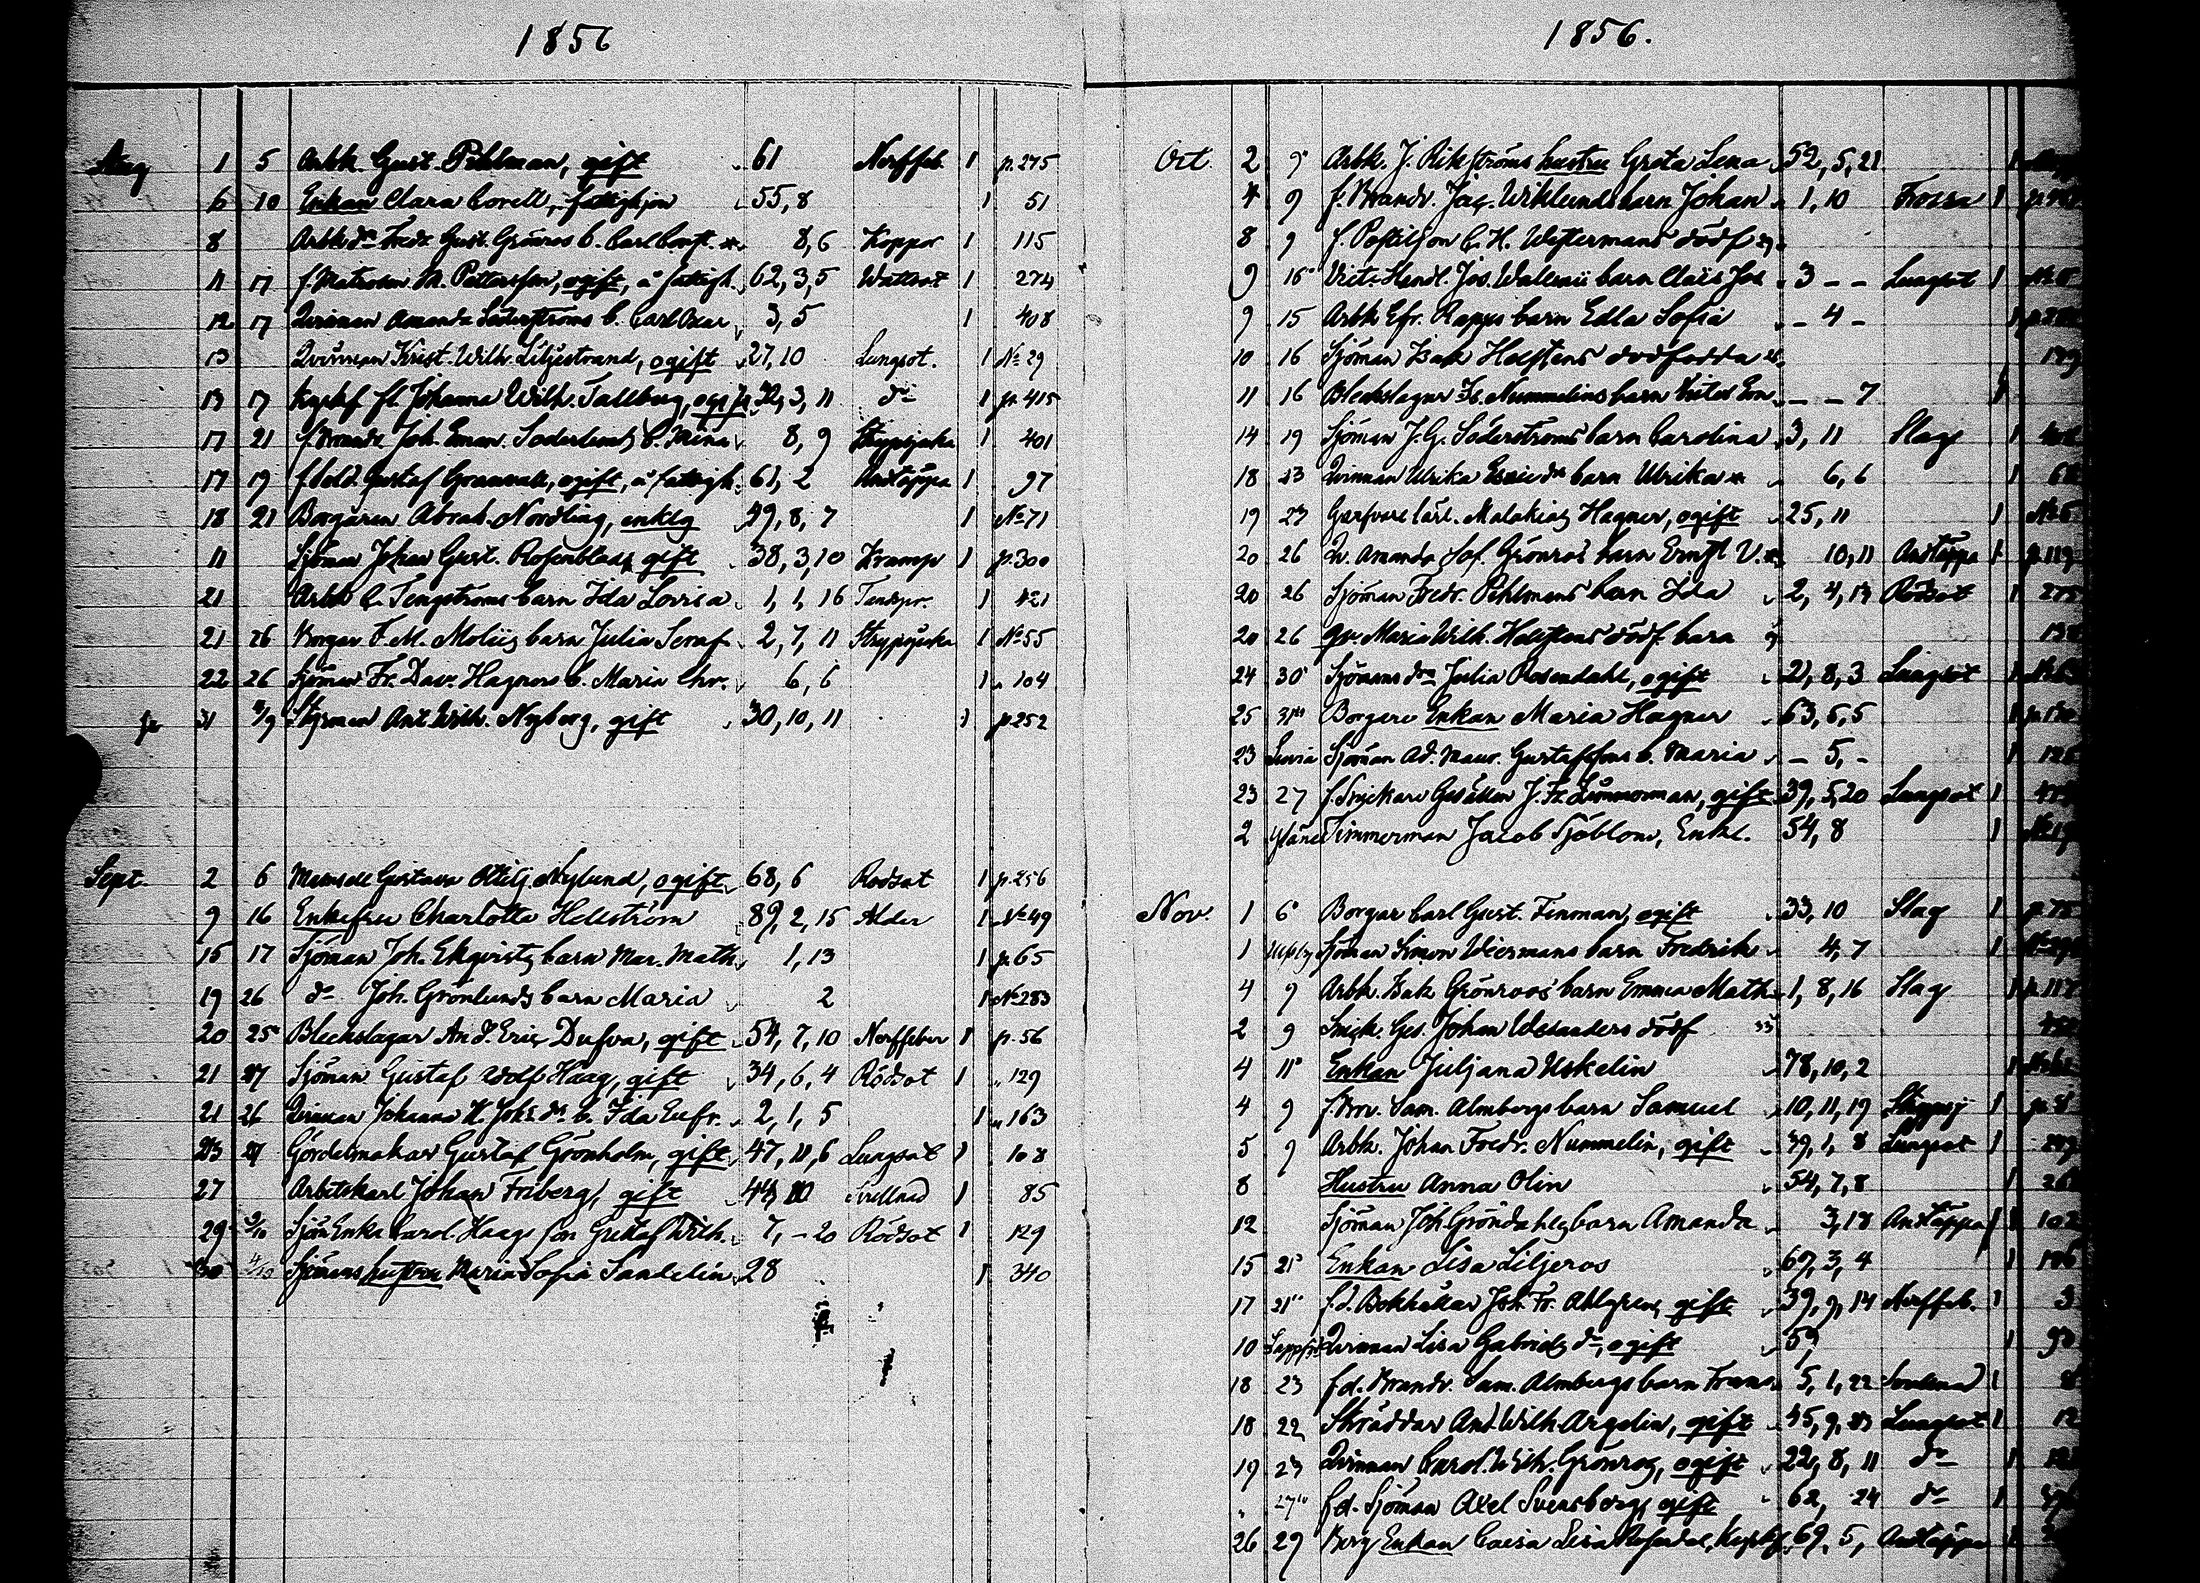 1856
Aug 1 5 Arbk. Gust. Pihlman, gift 61 Nerffeb. 1 p. 275
6 10 Enkan Clara Corell, fattighjon 55, 8 1 51
8 Arbk dr Fredr. Gust. Grönros b. Carl Const. 8, 6 Koppor 1 115
11 17 f. Matrosen M. Pettersson, ogift, å fattigh. 62, 3, 5 Wattsot 1 274
12 17 Qvinnan Amanda Söderströms b. Carl Oscar 3, 5 1 408
13 Qvinnan Krist. Wilh. Liljestrand, ogift 27, 10 Lungsot. 1 No 29
13 17 Johanna Wilh. Tallberg, ogift 32, 3, 11 do 1 p. 415
17 21 f. Brandv. Joh. Eman. Söderlunds b. Mina 8, 9 Strypsjuka 1 401
17 19 f. Sold. Gustaf Granvall, ogift, å fattigh. 61, 2 Andtäppa 1 97
18 21 Borgaren Abrah. Nordling, enklg 49, 8, 7 1 No 71
11 Sjöman Johan Gust. Rosenblad, gift 38, 3, 10 Kramp 1 p. 300
21 Arbk C. Tengströms barn Ida Lovisa 1, 1, 16 Tandspr. 1 421
21 26 Borgar F. M. Moliis barn Julia Seraf. 2, 7, 11 Strypsjuka 1 No 55
22 26 Sjöman Fr. Dav. Hagners b. Maria Chr. 6, 6 1 104
31 4/9 Styrman Ant. Wilh. Nyberg, gift 30, 10, 11 1 p. 252
Sept. 2 6 Mamsell Gustava Ottilj. Nylund, ogift 68, 6 Rödsot 1 p. 256
9 16 Enkefru Charlotta Hellström 89, 2, 15 Ålder 1 No 49
15 17 Sjöman Joh. Ekqvists barn Mar. Math. 1, 13 1 p. 65
19 26 do Joh. Grönlunds barn Maria 2 1 No 283
20 25 Bleckslagar And. Eric Dufva, gift 54, 7, 10 Nerffeber 1 p. 56
21 27 Sjöman Gustaf Adolf Haag, gift 34, 6, 4 Rödsot 1 129
21 26 Qvinnan Johanna H. Johs dr b. Ida Eufr. 2, 1, 5 1 163
23 27 Gördelmakar Gustaf Grönholm, gift 47, 11, 6 Lungsot 1 108
27 Arbetskarl Johan Friberg, gift 44, 10 Svullnad 1 85
29 2/10 Sjöm Enka Carol. Haags son Gustaf Wilh. 7, – 20 Rödsot 1 129
30 4/10 Sjömans hustru Maria Sofia Sandelin 28 1 340
1856.
Oct 2 9 Arbk. J. Rikströms hustru Greta Lena 52, 5, 21 1
4 9 f. Brandv. Jac. Wiklunds barn Johan 1, 10 Frossa 1
8 9 f. Postiljon C. H. Westermans dödf
9 16 Vict. Handl. Jos. Wallenii barn Claës Jos 3 – – Lungsot 1
9 15 Arbk Efr. Rapps barn Edla Sofia – 4 – 1
10 16 Sjöman Isak Helstens dödfödda 139
11 16 Bleckslagar Fr. Nummelins barn – – 7 1
14 19 Sjöman J. G. Söderströms barn Carolina 3, 11 Slag 1 408
18 23 Qvinnan Ulrika Esaiedr barn Ulrika 6, 6 1 68
19 23 Garfvare lärl. Malakias Hagner, ogift 25, 11 1
20 26 Q. Amanda Sof. Grönros barn Ernst V. 10, 11 Andtäppa 1 p. 119
20 26 Sjöman Fredr. Pihlmans barn Ida 2, 4, 13 Rödsot 1 275
20 26 Qv. Maria Wilh. Helstens dödf. barn 138
24 30 Sjömans dr Julia Rosendahl, ogift 21, 8, 3 Lungsot 1
25 31 Borgare Enkan Maria Hagner 63, 6, 5 1
23 Lovisa Sjöman Ad. Maur. Gustafssons b. Maria – 5, – 1 125
23 27 f. Snickare Gesällen J. Fr. Zimmerman, gift 39, 5, 20 Lungsot 1
2 Timmerman Jacob Sjöblom, Enkl. 54, 8 1
Nov. 1 6 Borgar Carl Gust. Finman, ogift 33, 10 Slag 1
1 Sjöman Simon Widemans barn Fredrik 4, 7 1
4 9 Arbk. Isak Grönroos barn Emma Math. 1, 8, 16 Slag 1 p. 117
2 9 Snick. Ges. Johan Welanders dödf
4 11 Enkan Juljana Uskelin 78, 10, 2 1
4 9 f. Brv. Sam. Almbergs barn Samuel 10, 11, 19 Strypsj 1 p. 8
5 9 Arbk. Johan Fredr. Nummelin, gift 39, 1, 8 Lungsot 1 249
8 Hustru Anna Olin 54, 7, 8 1 261
12 Sjöman Joh. Gröndahls barn Amanda 3, 18 Andtäppa 1 102
15 21 Enkan Lisa Liljeros 67, 3, 4 1 186
17 21 f. d. Bokhållar Joh. Fr. Ahlgren, gift 39, 9, 14 Nerffeb. 1 3
10 Qvinnan Lisa Gabriels dr, ogift 59, 1 93
18 23 fd. Brandv. Sam. Almbergs barn Frans 5, 1, 22 Svullnad 1 8
18 22 Skräddar And. Wilh. Argelin, gift 45, 9, 23 Lungsot 1 12
19 23 Qvinnan Carol. Wilh. Grönros, ogift 22, 8, 11 do 1
27 fd. Sjöman Axel Svensberg, gift 62, 24 do 1
26 29 Borg Enkan Caisa Lisa 69, 5, Andtäppa 1